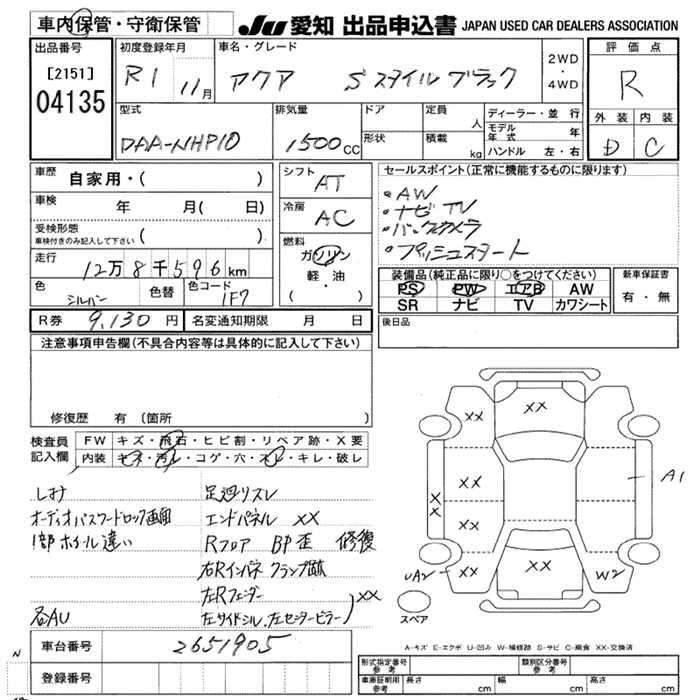 車内保管・守衛保管
JU 愛知 出品申込書 JAPAN USED CAR DEALERS ASSOCIATION
出品番号
[2151]
04135
初度登録年月
R1 11月
車名・グレード
アクア Sスタイルブラック
2WD
・
4WD
評価点
R
外装 内装
D C
型式
DAA-NHP10
排気量
1500 CC
ドア
形状
定員 人
積載 kg
ディーラー・並行
モデル年式 年
ハンドル 左・右
車歴
自家用・( )
車検 年 月( 日)
受検形態
車検付きのみ記入して下さい ( )
走行
12万8千596km
色
シルバー
色替
色コード
1F7
シフト
AT
冷房
AC
燃料
ガソリン
軽・油
( )
セールスポイント(正常に機能するものに限ります)
・AW
・ナビTV
・バックカメラ
・プッシュスタート
装備品(純正品に限り○をつけてください)
PS PW エアB AW
SR ナビ TV カワシート
新車保証書
有・無
R券 9,130円
名変通知期限 月 日
後日品
注意事項申告欄(不具合内容等は具体的に記入して下さい)
修復歴 有(箇所 )
検査員
記入欄
FW キズ・飛石・ヒビ割・リペア跡・X要
内装 キズ・汚レ・コゲ・穴・スレ・キレ・破レ
しみ
オーディオパスワードロック画面
1部ホイール違い
各AU
足廻リスレ
エンドパネル XX
Rフロア BP歪 修復
右Rインパネ クランプ跡
左Rフェンダー
左サイドシル、左センターピラー XX
XX
XX
XX
XX
XX
A1
UA2
XX
XX
W2
スペア
A-キズ E-エクボ U-凹み W-補修跡 S-サビ C-腐食 XX-交換済
車台番号 2651905
型式指定番号
参考
類別区分番号
参考
車庫証明用
参考
長さ cm
幅 cm
高さ cm
N